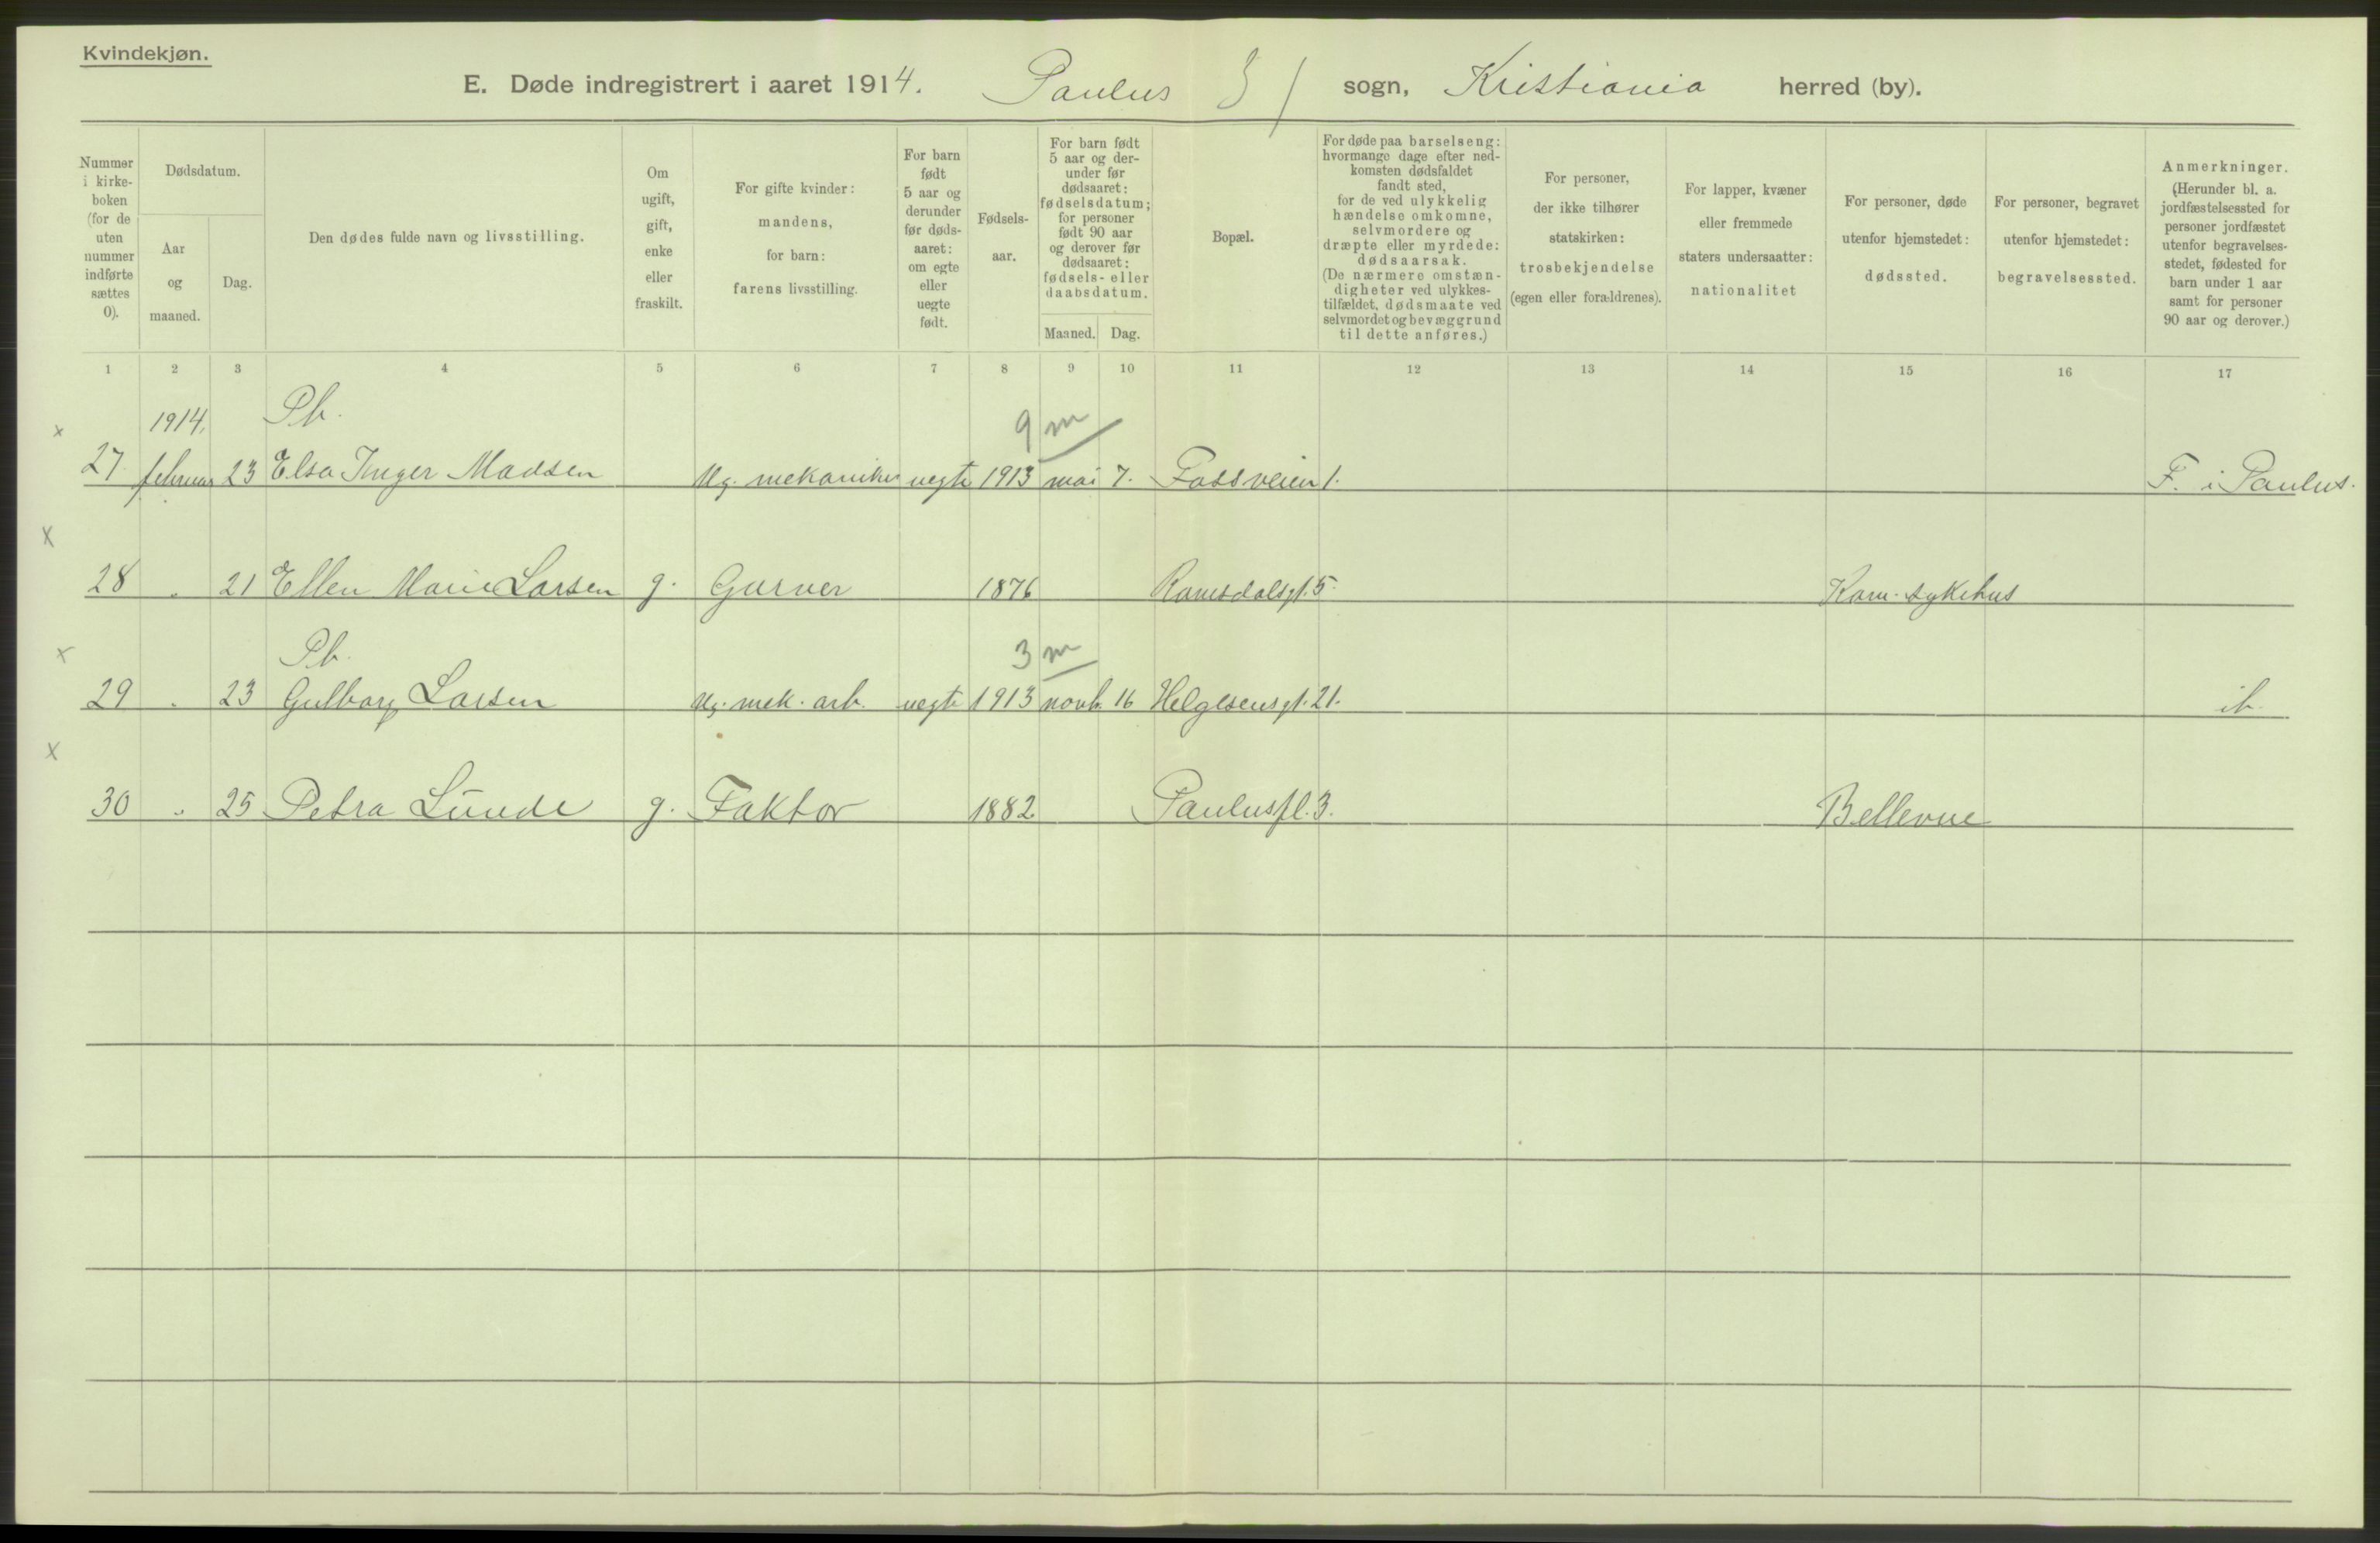 Kvindekjøn.
E. Døde indregistrert i aaret 1914. Paulus sogn, Kristiania herred (by).
Nummer i kirke-boken (for de uten nummer indførte sættes 0).
Dødsdatum.
Aar og maaned.
Dag.
Den dødes fulde navn og livsstilling.
Om ugift, gift, enke eller fraskilt.
For gifte kvinder: mandens, for barn: farens livsstilling.
For barn født 5 aar og derunder før døds-aaret: om egte eller uegte født.
Fødsels-aar.
For barn født 5 aar og der-under før dødsaaret: fødselsdatum; for personer født 90 aar og derover før dødsaaret: fødsels- eller daabsdatum.
Maaned. Dag.
Bopæl.
For døde paa barselseng: hvormange dage efter ned-komsten dødsfaldet fandt sted, for de ved ulykkelig hændelse omkomne, selvmordere og dræpte eller myrdede: dødsaarsak. (De nærmere omstæn-digheter ved ulykkes-tilfældet, dødsmaate ved selvmordet og bevæggrund til dette anføres.)
For personer, der ikke tilhører statskirken: trosbekjendelse (egen eller forældrenes).
For lapper, kvæner eller fremmede staters undersaatter: nationalitet
For personer, døde utenfor hjemstedet: dødssted.
For personer, begravet utenfor hjemstedet: begravelsessted.
Anmerkninger. (Herunder bl. a. jordfæstelsessted for personer jordfæstet utenfor begravelses-stedet, fødested for barn under 1 aar samt for personer 90 aar og derover.)
1 2 3 4 5 6 7 8 9 10 11 12 13 14 15 16 17
1914. Pb. 9 m
27 februar 23 Elsa Inger Madsen Ug. mekaniker uegte 1913 mai 7. Fossveien 1. F. i Paulus.
28 " 21 Ellen Marie Larsen g. Gurver 1876 Ramsdalsgt. 5. Kom. sykehus
Pb. 3 m
29 " 23 Gulborg Larsen Ug. mek. arb. uegte 1913 novb. 16 Helgesensgt. 21. ib.
30 " 25 Petra Lunde g. Faktor 1882 Pauluspl. 3. Bellevue